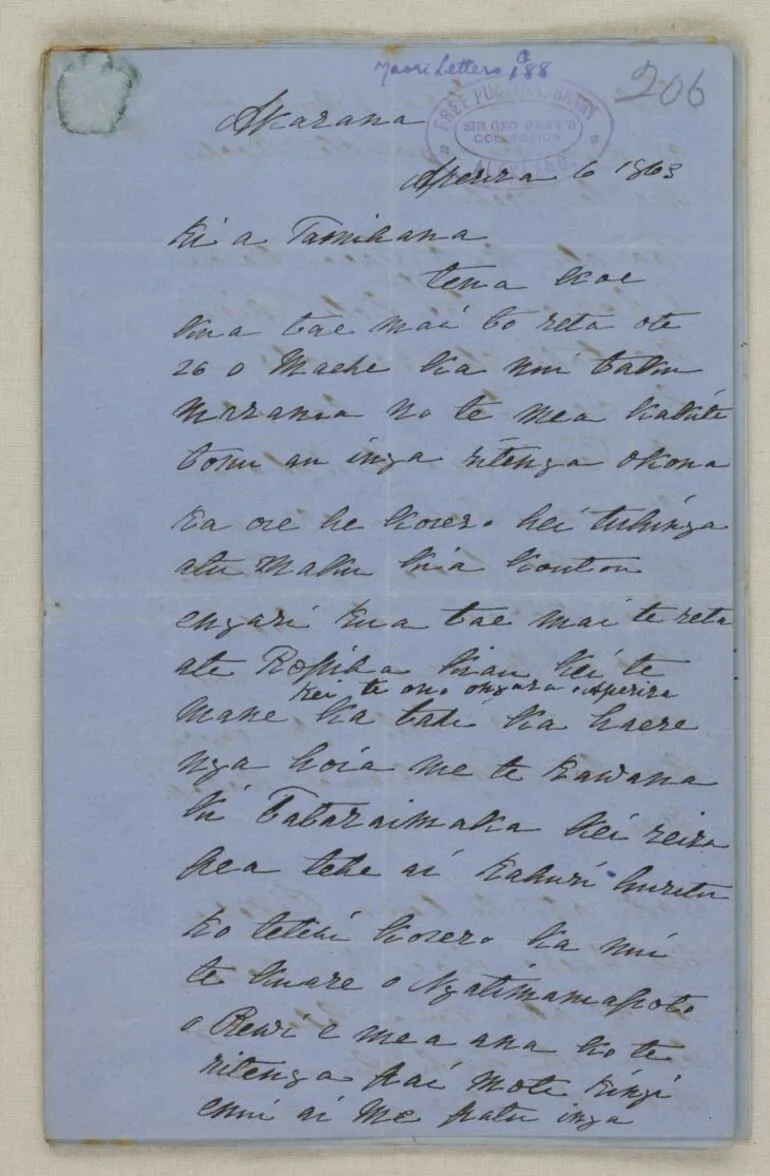 Maori Letters 188
206
FREE PUBLIC LIBRARY
SIR GEO GREY'S
COLLECTION
AUCKLAND
Akarana
Aperira 6 1863
Ki a Tamihana
tena koe
kua tae mai to reta ote
26 o Maehe ka nui taku
no te mea kakite
tonu au inga ritenga okona
Ka ore he korero hei tuhinga
atu Maku kia koutou
engari kua tae mai te reta
ate Ropiha kiau kei te
kei te ono ongara o Aperira
mane ka tahi ka haere
nga hoia me te Kawana
ki Tataraimaka kei reira
pea tehe ai
ko tetehi korero ka nui
te kuare o Ngatimaniapoto
o Rewi e mea ana ko te
ritenga pai mote Kingi
ai me patu inga